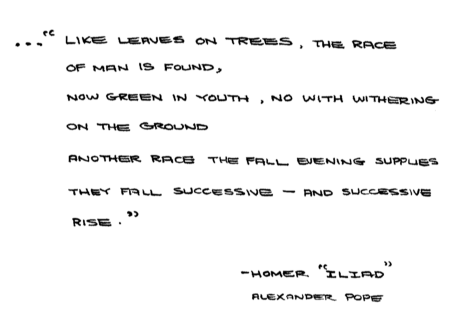 ..." LIKE LEAVES ON TREES, THE RACE
OF MAN IS FOUND,
NOW GREEN IN YOUTH, NO WITH WITHERING
ON THE GROUND
ANOTHER RACE THE FALL EVENING SUPPLIES
THEY FALL SUCCESSIVE - AND SUCCESSIVE
RISE."
-HOMER "ILIAD"
ALEXANDER POPE